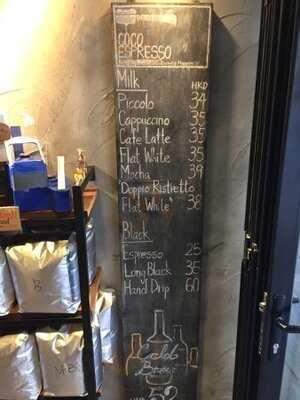 COCO
ESPRESSO
Milk HKD
Piccolo 34
Cappuccino 35
Cafe Latte 35
Flat White 35
Mocha 39
"Doppio Ristretto
Flat White" 38
Black
Espresso 25
Long Black 35
Hand Drip 60
Cold
Brew
52
B